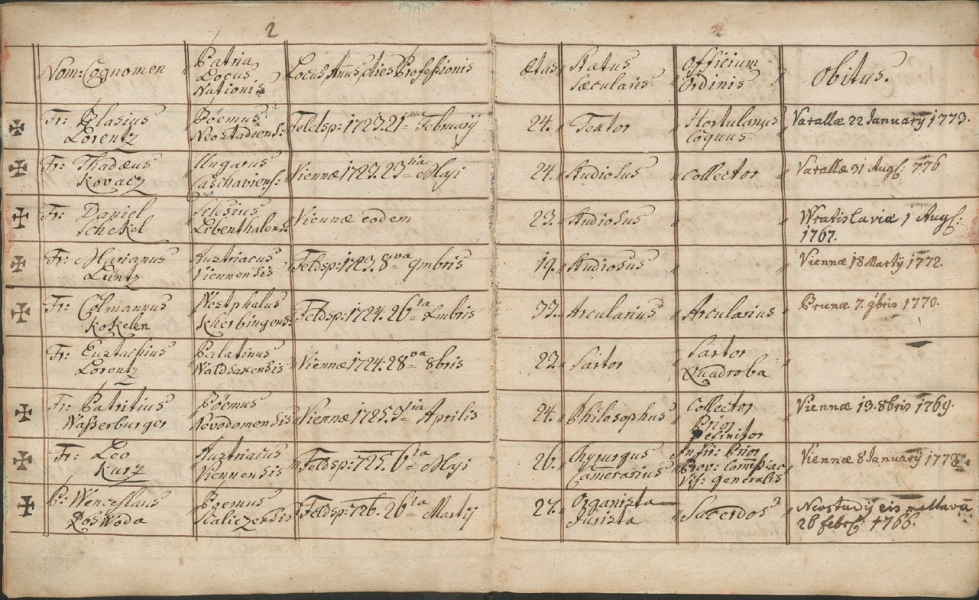 2
Nom: Cognomen
Patria
Locus
Nationis
Locus Annus dies Professionis
Ætas
Status
Sæcularis
Officium
Ordinis
Obitus.
Fr: Blasius
Lorentz
Böemus
Neostadiens:
Feldsp: 1723. 21 Februarij
24.
Textor
Hortulanus
Coquus
Varallæ 22 Januarij 1773.
Fr: Thadæus
Kovacz
Ungarus
Cashaviens:
Viennæ 1723. 23tia Maji
24.
Studiosus
Collector
Varallæ 31 Aug: 776
Fr: Daniel
Schekel
Silesius
Libenthalens:
Viennæ eodem
23.
Studiosus
Wratislaviæ 1 Aug:
1767.
Fr: Marianus
Austriacus
Viennensis
Feldsp: 1723. 8va 9mbris
19.
Studiosus
Viennæ 18 Martij 1772.
Fr: Colmannus
Kokelen
Westphalus
Feldsp: 1724. 26ta
33.
Arcularius
Arcularius
Brunæ 7. 9bris 1770.
Fr: Eustachius
Lorentz
Palatinus
Waldsaxensis
Viennæ 1724. 28va 8bris
23.
Sartor
Sartor
Quadroba
Fr: Patritius
Wasserburger
Böemus
Novodomensis
Viennæ 1725. 3tia Aprilis
24.
Philosophus
Collector
Prior
Definitor
Viennæ 13. 8bris 1769.
Fr: Leo
Kurz
Austriacus
Viennensis
Feldsp: 725. 6ta Maji
26.
Chyrurgus
Camerarius
Infir: Prior
Prov: Comissar
Vis: generalis
Viennæ 8 Januarij 1778.
P: Wenceslaus
Loswoda
Boemus
Skaliczensis
Feldsp: 726. 26ta Martij
27.
Organista
Jurista
Sacerdos
Neostadij
26 febr: 1766.